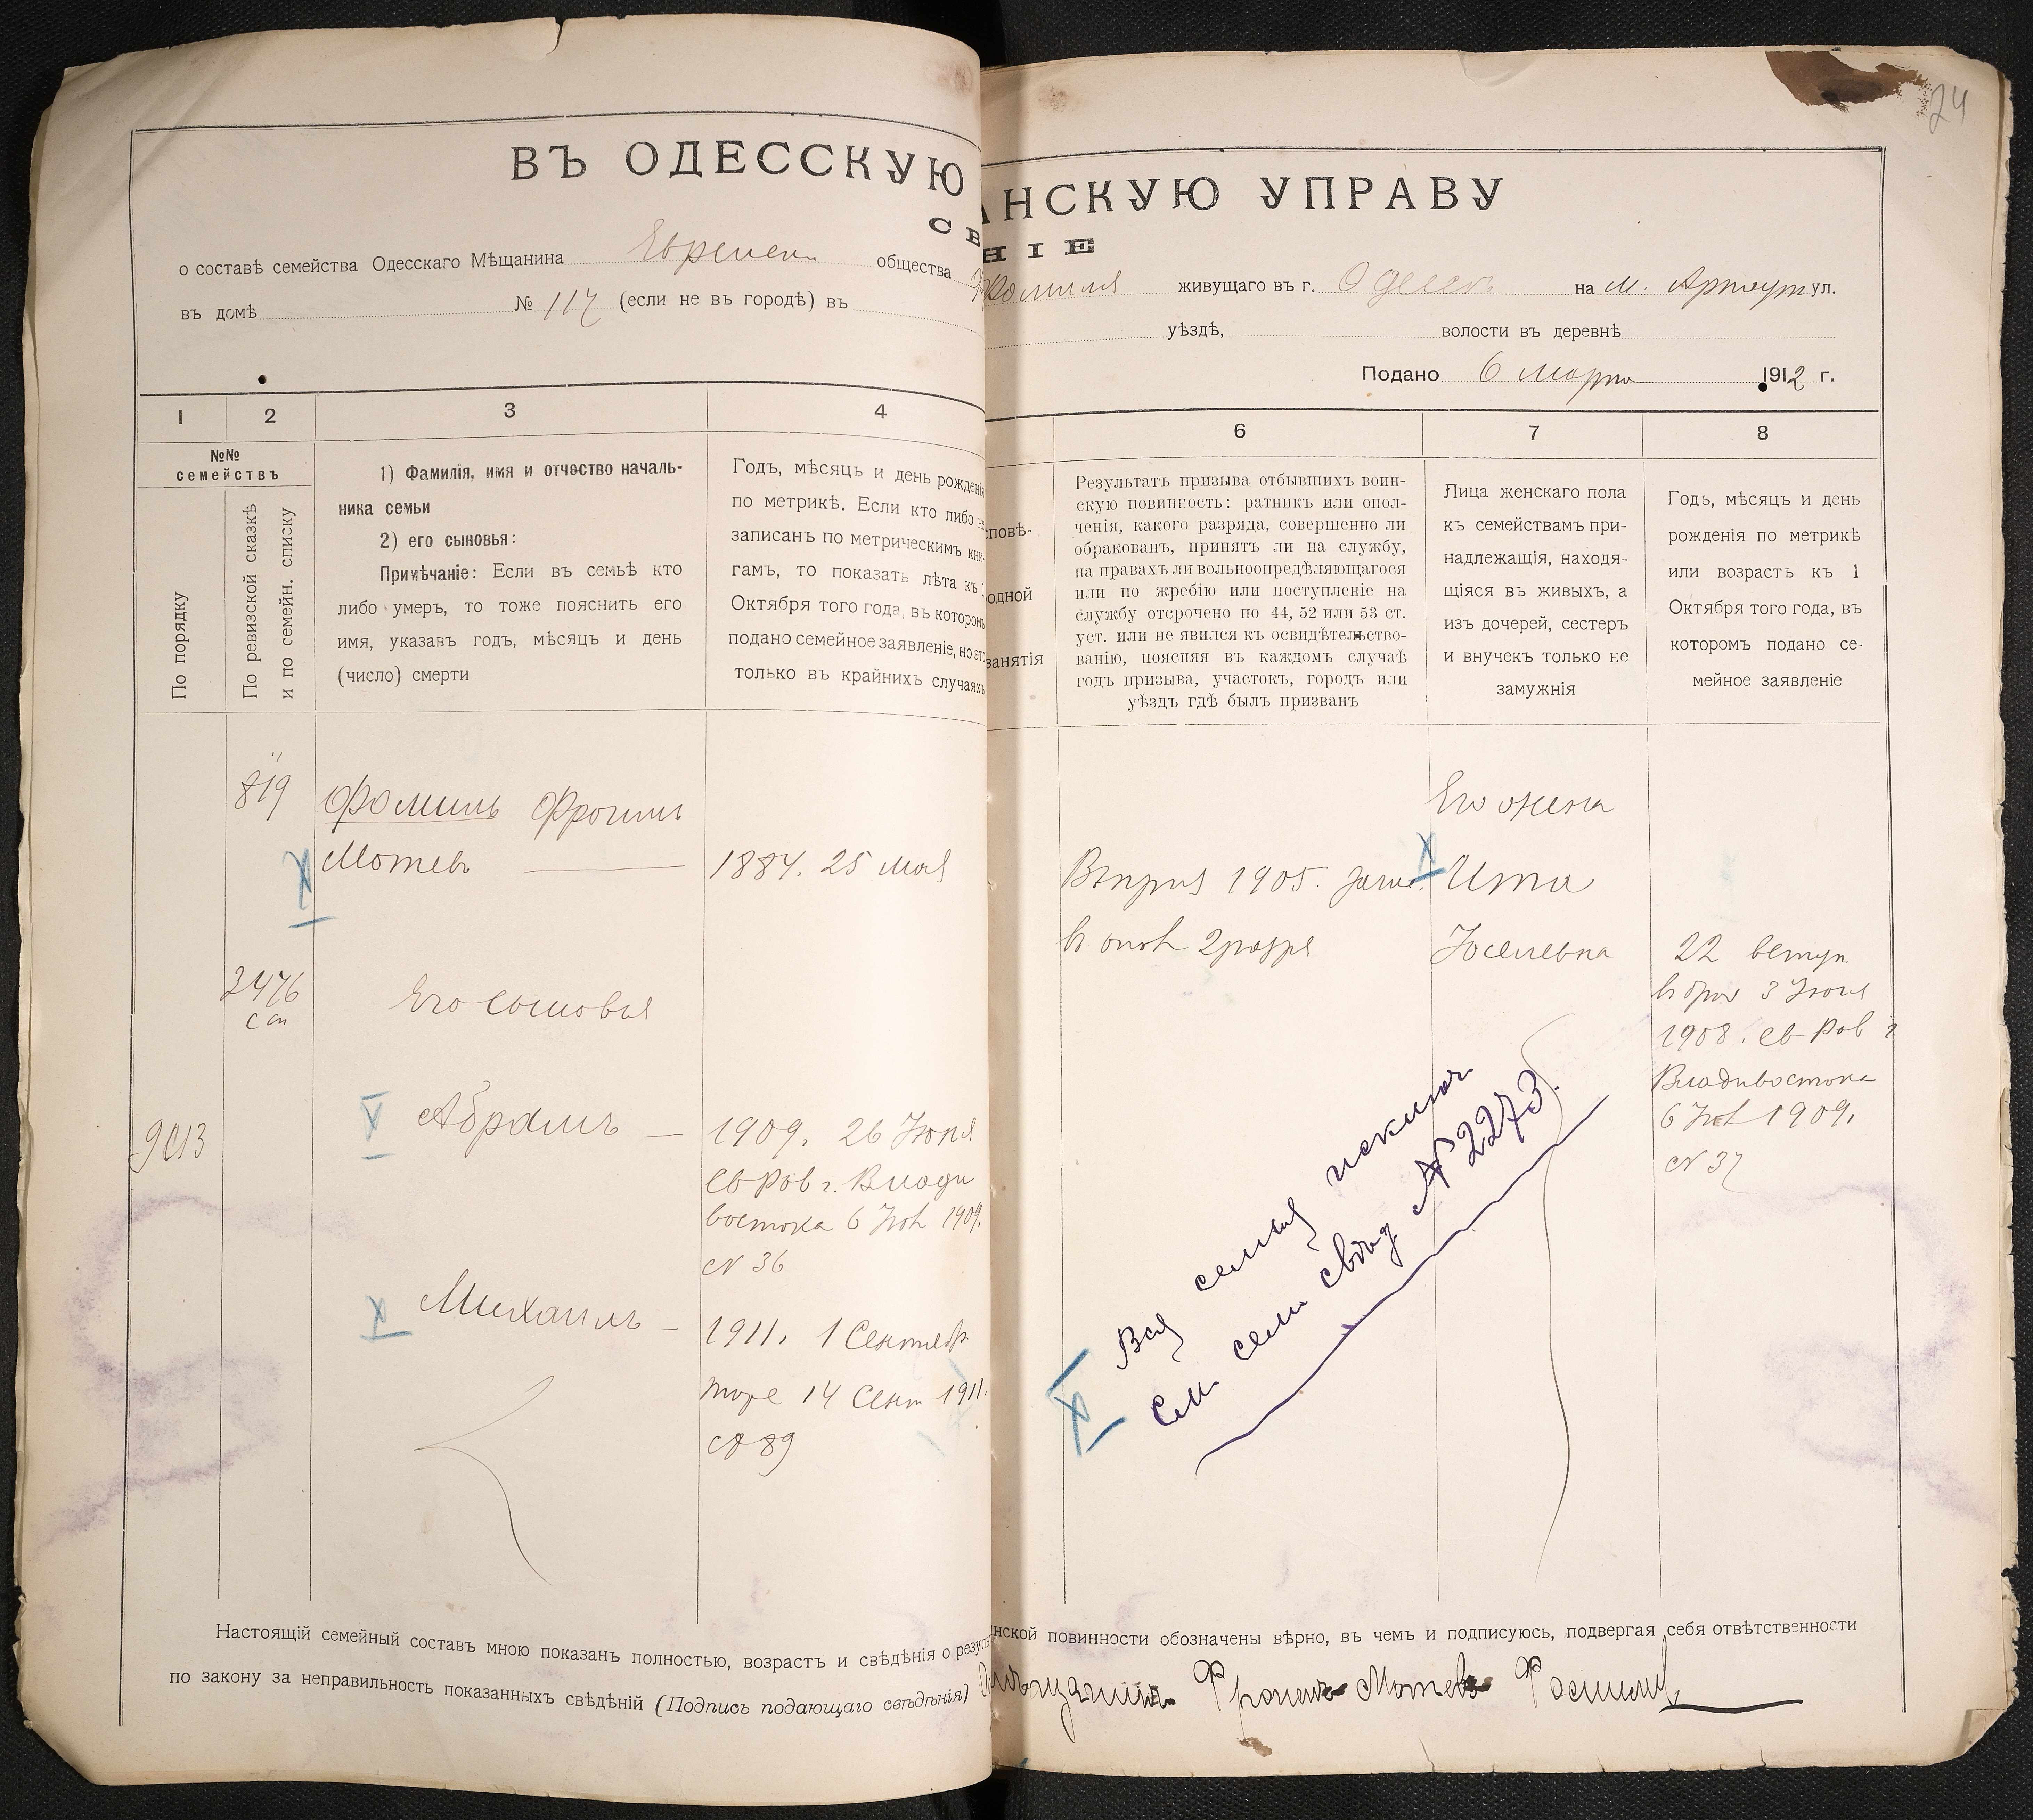 24
ВЪ ОДЕССКУЮ
АНСКУЮ УПРАВУ
СВ
НІЕ
о составѣ семейства Одесскаго Мѣщанина Еврейск. общества Фамиля живущаго въ г. Одессѣ на М. Арнаут ул.
въ домѣ № 117 (если не въ городѣ) въ уѣздѣ, волости въ деревнѣ
Подано 6 Марта 1912 г.
1 2 3 4
6 7 8
№№
семействъ
По порядку
По ревизской сказкѣ
и по семейн. списку
1) Фамилія, имя и отчество началь-
ника семьи
2) его сыновья:
Примѣчаніе: Если въ семьѣ кто
либо умеръ, то тоже пояснить его
имя, указавъ годъ, мѣсяцъ и день
(число) смерти
Годъ, мѣсяцъ и день рожденія
по метрикѣ. Если кто либо не
записанъ по метрическимъ кни-
гамъ, то показать лѣта къ 1
Октября того года, въ которомъ
подано семейное заявленіе, но это
только въ крайнихъ случаяхъ
сповѣ-
одной
занятія
Результатъ призыва отбывшихъ воин-
скую повинность: ратникъ или опол-
ченія, какого разряда, совершенно ли
обракованъ, принятъ ли на службу,
на правахъ ли вольноопредѣляющагося
или по жребію или поступленіе на
службу отсрочено по 44, 52 или 53 ст.
уст. или не явился къ освидѣтельство-
ванію, поясняя въ каждомъ случаѣ
годъ призыва, участокъ, городъ или
уѣздъ гдѣ былъ призванъ
Лица женскаго пола
къ семействамъ при-
надлежащія, находя-
щіяся въ живыхъ, а
изъ дочерей, сестеръ
и внучекъ только не
замужнія
Годъ, мѣсяцъ и день
рожденія по метрикѣ
или возрастъ къ 1
Октября того года, въ
которомъ подано се-
мейное заявленіе
819
Фамиль Фроимъ
Мотевъ
1884. 25 мая
2476
с сп
Его сыновья
9013
Абрамъ —
1909. 26 Іюня
Св Рав г. Влади
востока 6 Іюл 1909.
№ 36
Михаилъ —
1911. 1 Сентябр.
14 Сент 1911.
№ 89
Въ приз 1905. зачис.
в опол 2 разря
Его жена
Ита
Іоселевна
22 вступ
в брак 3 Іюня
1908. Св Рав г
Владивостока
6 Іюл 1909.
№ 37
Вся семья исключ
См. сем свод № 2273.
Настоящій семейный составъ мною показанъ полностью, возрастъ и свѣдѣнія о резуль
нской повинности обозначены вѣрно, въ чемъ и подписуюсь, подвергая себя отвѣтственности
по закону за неправильность показанныхъ свѣдѣній (Подпись подающаго свѣдѣнія) Мѣщанинъ Фроимъ Мотевъ Фамиль